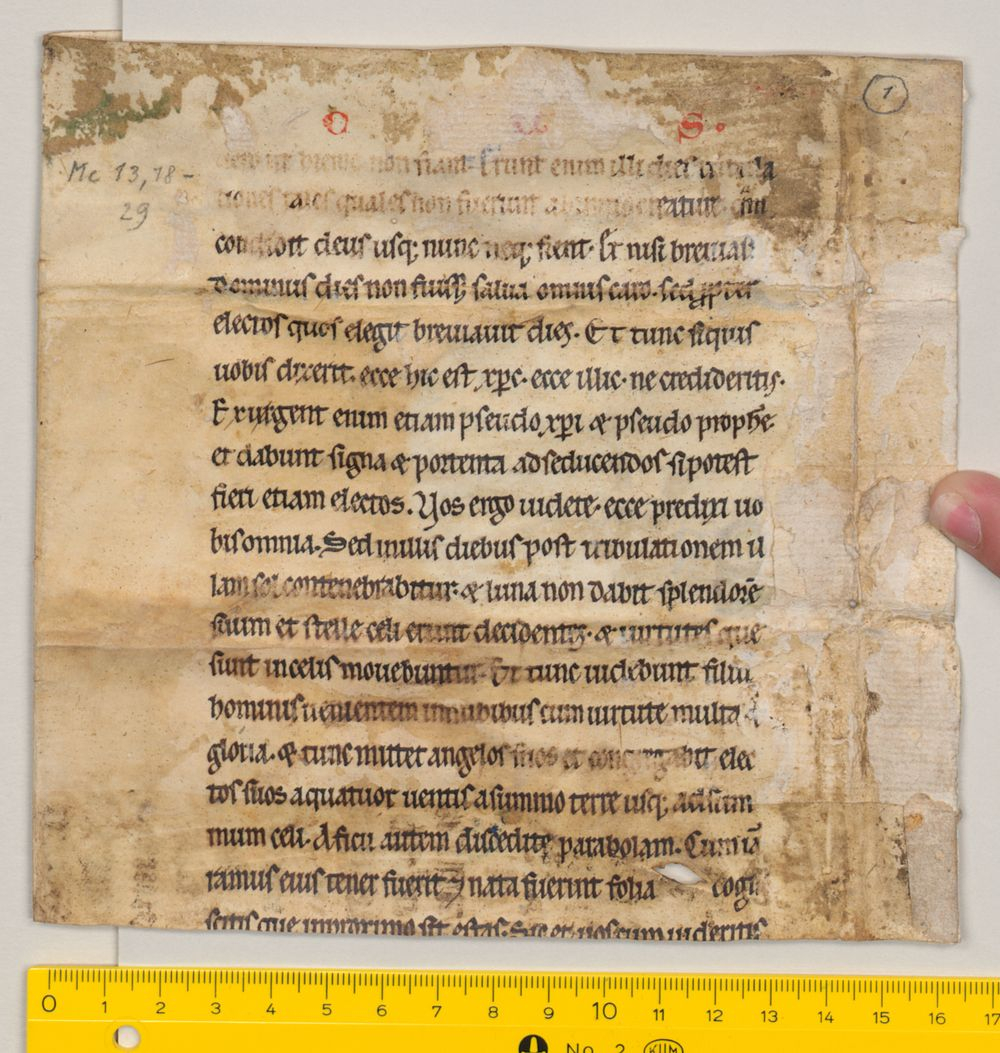 1
Mc 13,18-
29
O C S.
hieme non fiant. Erunt enim illi dies tribula
tiones tales quales non fuerunt ab initio creature quā
condidit deus usq; nunc neq; fient. Et nisi breuias
dominus dies non fuiss; salua omnis caro. sed ꝓpter
electos quos elegit breuiauit dies. Et tunc siquis
uobis dixerit. ecce hic est xp̄c. ecce illic. ne credideritis.
Exurgent enim etiam pseudo xp̄i & pseudo prophē
et dabunt signa & portenta ad seducendos si potest
fieri etiam electos. Uos ergo uidete. ecce predixi uo
bis omnia. Sed in illis diebus post tribulationem il
lam sol contenebrabitur. & luna non dabit splendorē
suum et stelle celi erunt decidentes. & uirtutes que
sunt in celis mouebuntur. Et tunc uidebunt filiū
hominis uenientem in nubibus cum uirtute multa &
gloria. & tunc mittet angelos suos et congregabit elec
tos suos a quatuor uentis a summo terre usq; ad sum
mum celi. A ficu autem discite parabolam. Cum iā
ramus eius tener fuerit & nata fuerint folia cogn
scitis que in proximo sit estas. Sic et uos cum uideritis